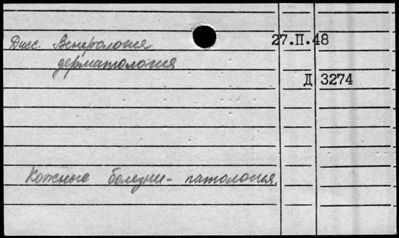 Дисс. Венерология 27.II.48
дерматология
Д 3274
Кожные болезни - патология.